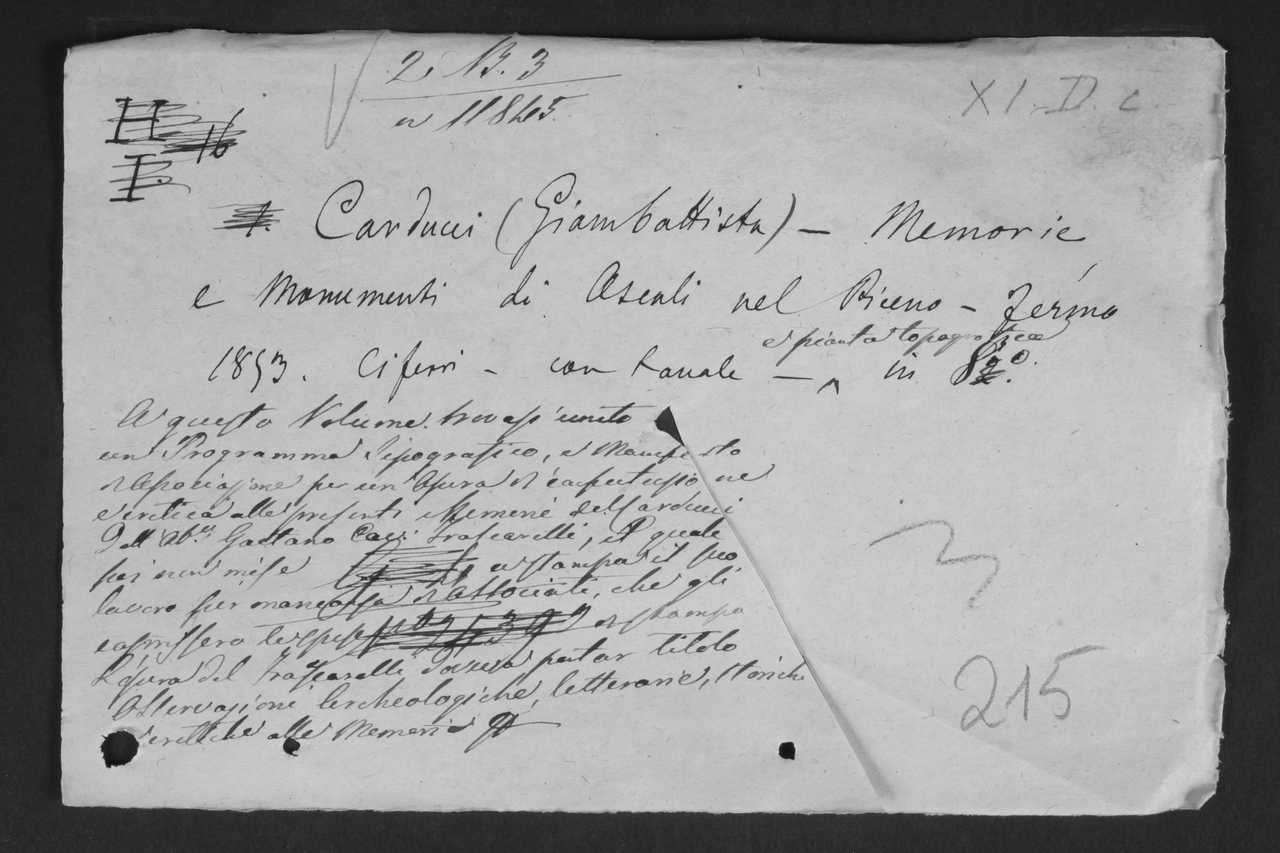 2. B. 3
n 11845.
XI. D. c.
H
I
16
1. Carducci (Giambattista) – Memorie
e Monumenti di Ascoli nel Piceno – Fermo
e pianta topografica
1853. Ciferri – con tavole – in 8°.
A questo Volume trovasi unito
un Programma Tipografico, e Manifesto
per un'Opera
e critica alle presenti Memorie del Carducci
Dall' Ab.e Gaetano Frascarelli, il quale
poi non mise a stampa il suo
lavoro per mancanza d'Associati, che gli
le spese di stampa
L'opera del Frascarelli doveva portar titolo
Osservazioni Archeologiche, letterarie, storiche
critiche alle Memorie
3
215